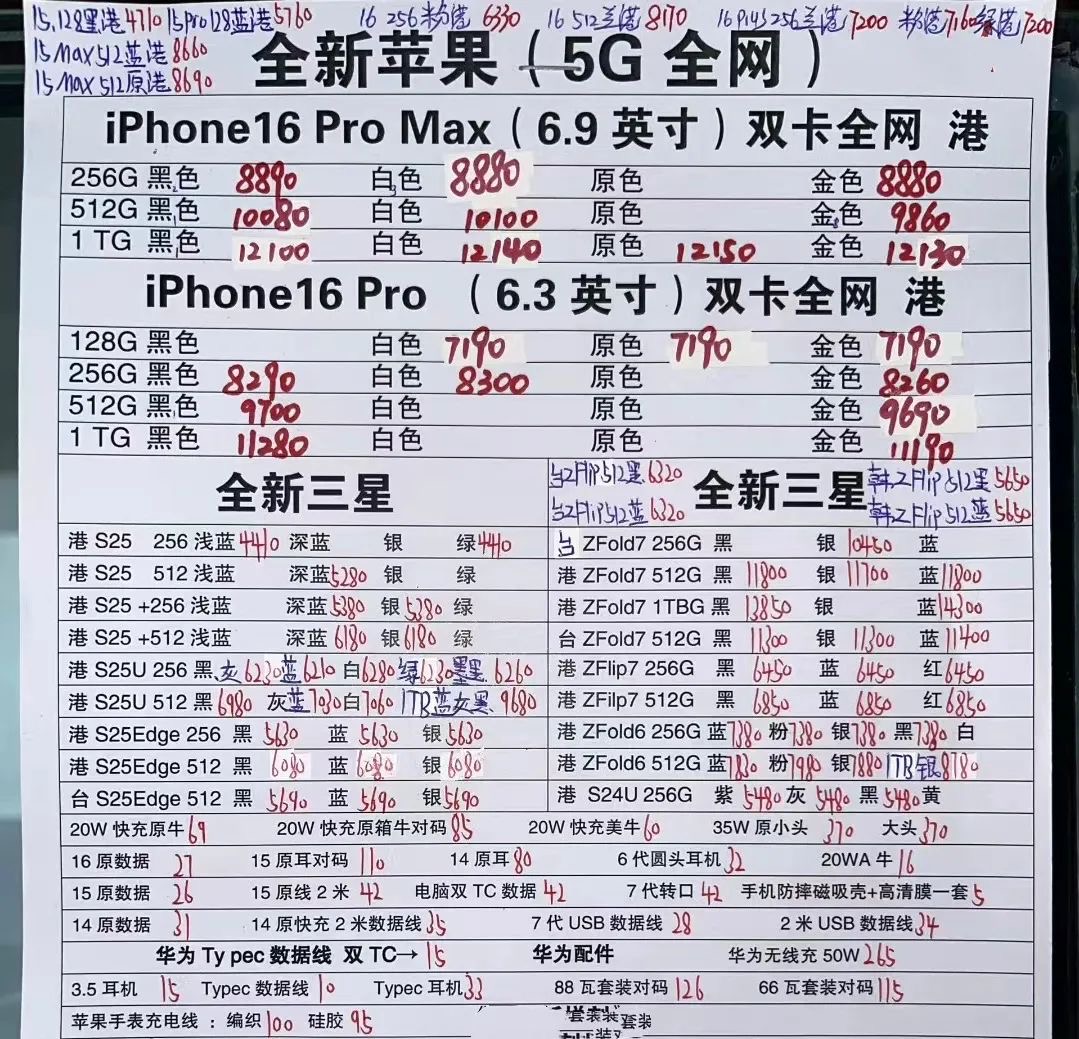 15.128黑港4710 15pro128蓝港5760 16 256粉港6330 16 512兰港8170 16Plus256兰港7200 粉港7160绿港7200
15Max512蓝港8660
15Max512原港8690
全新苹果（5G全网）
iPhone16 Pro Max（6.9英寸）双卡全网 港
256G 黑色 8890 白色 8880 原色 金色 8880
512G 黑色 10080 白色 10100 原色 金色 9860
1 TG 黑色 12100 白色 12140 原色 12150 金色 12130
iPhone16 Pro （6.3英寸）双卡全网 港
128G 黑色 白色 7190 原色 7190 金色 7190
256G 黑色 8290 白色 8300 原色 金色 8260
512G 黑色 9700 白色 原色 金色 9690
1 TG 黑色 11280 白色 原色 金色 11190
全新三星
港 S25 256 浅蓝4410 深蓝 银 绿4410
港 S25 512 浅蓝 深蓝5280 银 绿
港 S25 +256 浅蓝 深蓝5380 银5380 绿
港 S25 +512 浅蓝 深蓝6180 银6180 绿
港 S25U 256 黑.灰6230蓝6210白6280绿6230墨黑6260
港 S25U 512 黑6980 灰蓝7030白7060 1TB蓝灰黑9680
港 S25Edge 256 黑 5630 蓝 5630 银5630
港 S25Edge 512 黑 6080 蓝 6080 银6080
台 S25Edge 512 黑 5690 蓝 5690 银5690
台ZFlip512黑6320 全新三星 韩ZFlip512黑5650
台ZFlip512蓝6320 韩ZFlip512蓝5650
台 ZFold7 256G 黑 银 10450 蓝
港 ZFold7 512G 黑 11800 银 11700 蓝11800
港 ZFold7 1TBG 黑 13850 银 蓝14300
台 ZFold7 512G 黑 11300 银 11300 蓝 11400
港 ZFlip7 256G 黑 6450 蓝 6450 红6450
港 ZFilp7 512G 黑 6850 蓝 6850 红6850
港 ZFold6 256G 蓝7380 粉7380 银7380 黑7380 白
港 ZFold6 512G 蓝7830 粉7980 银7880 1TB银8780
港 S24U 256G 紫 5480 灰 5480 黑 5480 黄
20W 快充原牛69 20W 快充原箱牛对码85 20W 快充美牛60 35W 原小头 370 大头370
16 原数据 27 15 原耳对码 110 14 原耳80 6 代圆头耳机32 20WA 牛16
15 原数据 26 15 原线 2 米 42 电脑双 TC 数据42 7 代转口 42 手机防摔磁吸壳+高清膜一套5
14 原数据 31 14 原快充 2 米数据线35 7 代 USB 数据线 28 2 米 USB 数据线34
华为 Ty pec 数据线 双 TC→ 15 华为配件 华为无线充 50W265
3.5 耳机 15 Typec 数据线10 Typec 耳机33 88 瓦套装对码126 66 瓦套装对码115
苹果手表充电线 ：编织100 硅胶 95